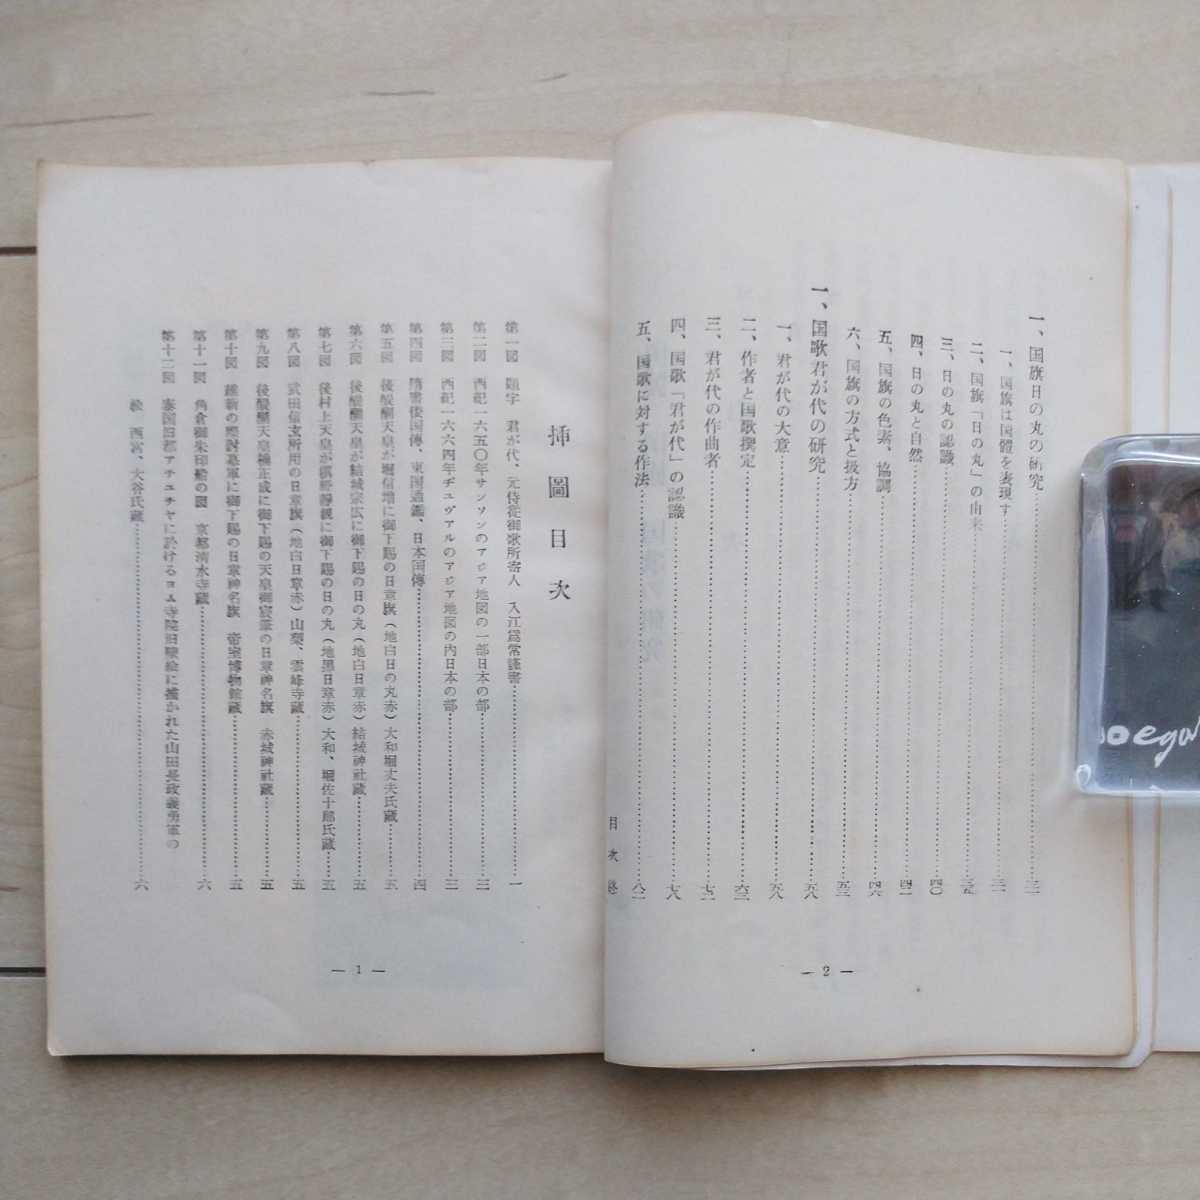 一、国旗日の丸の研究
一、国旗は国體を表現す
二、国旗「日の丸」の由来
三、日の丸の認識
四、日の丸と自然
五、国旗の色素、協調
六、国旗の方式と扱方
一、国歌君が代の研究
一、君が代の大意
二、作者と国歌撰定
三、君が代の作曲者
四、国歌「君が代」の認識
五、国歌に対する作法
目次終
— 2 —
挿圖目次
第一図 題字 君が代、元侍従御歌所寄人 入江爲常謹書 一
第二図 西紀一六五〇年サンソンのアジア地図の一部日本の部 三
第三図 西紀一六六四年ヂュヴァルのアジア地図の内日本の部 三
第四図 隋書倭国傳、東国通鑑、日本国傳 四
第五図 後醍醐天皇が堀信増に御下賜の日章旗(地白日の丸赤)大和堀丈夫氏蔵 五
第六図 後醍醐天皇が結城宗広に御下賜の日の丸(地白日章赤)結城神社蔵 五
第七図 後村上天皇が御下賜の日の丸(地黒日章赤)大和、堀佐十郎氏蔵 五
第八図 武田信玄所用の日章旗(地白日章赤)山梨、雲峰寺蔵 五
第九図 後醍醐天皇楠正成に御下賜の天皇御宸筆の日章神名旗 赤城神社蔵 五
第十図 維新の際討幕軍に御下賜の日章神名旗 帝室博物館蔵 五
第十一図 角倉御朱印船の図 京都清水寺蔵 六
第十二図 泰国旧都アチュチヤに於けるヨム寺院旧壁絵に描かれた山田長政義勇軍の
絵 西宮、大谷氏蔵 六
— 1 —